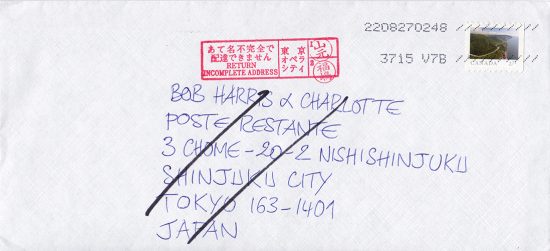 2208270248
3715 V7B
CANADA
あて名不完全で
配達できません
RETURN
INCOMPLETE ADDRESS
東京
オペラ
シティ
1.
山元
2.
福
BOB HARRIS & CHARLOTTE
POSTE RESTANTE
3 CHOME-20-2 NISHISHINJUKU
SHINJUKU CITY
TOKYO 163-1401
JAPAN